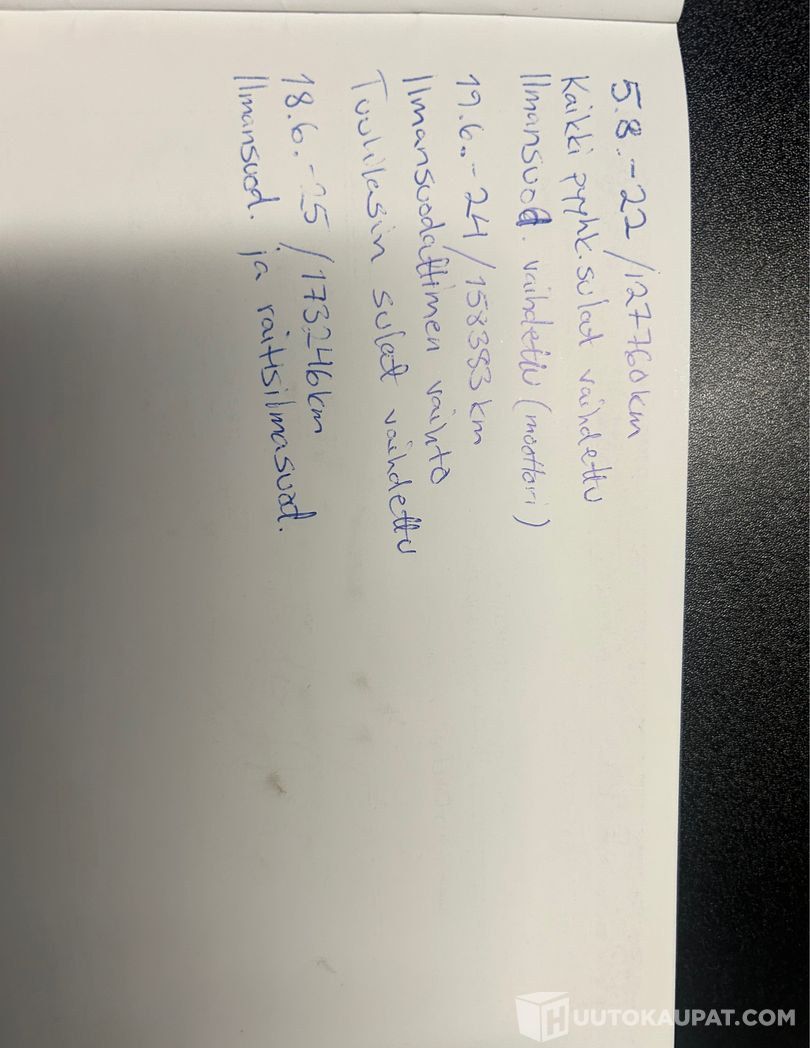 5.8.-22 / 127760km
Kaikki pyyhk. sulat vaihdettu
Ilmansuod. vaihdettu (moottori)
19.6.-24 / 158383 km
Ilmansuodattimen vaihto
Tuulilasin sulat vaihdettu
18.6.-25 / 173246km
Ilmansuod. ja raitisilmasuod.
HUUTOKAUPAT.COM